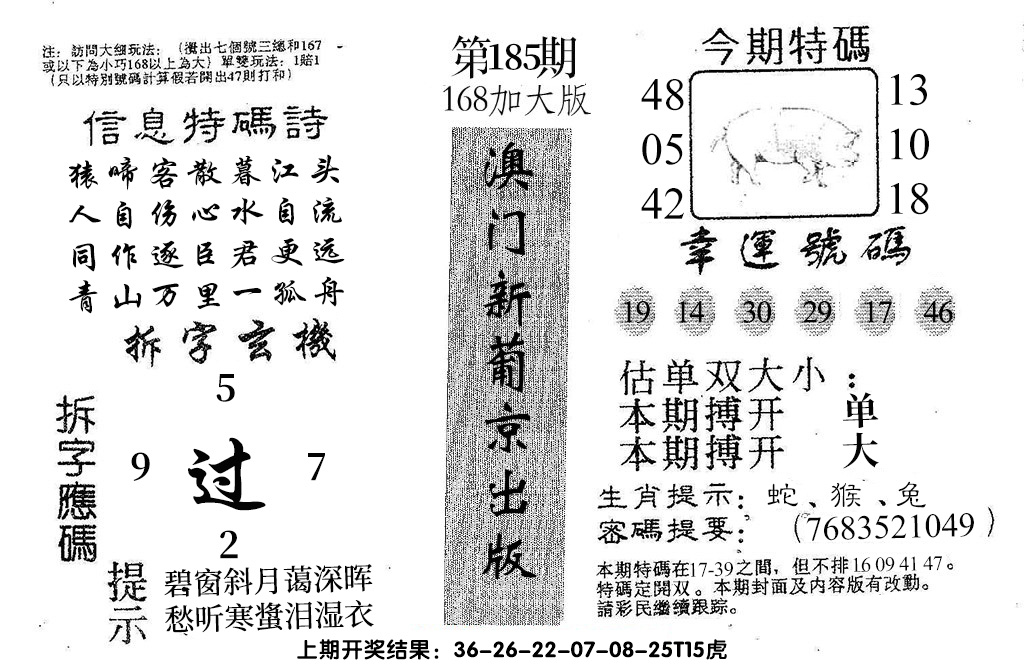 注：訪問大细玩法：（攪出七個號三總和167
或以下為小巧168以上為大）單雙玩法：1賠1
（只以特別號碼計算假若開出47則打和）
信息特碼詩
猿啼客散暮江头
人自伤心水自流
同作逐臣君更远
青山万里一孤舟
拆字玄機
5
9 过 7
2
拆字應碼
提示
碧窗斜月蔼深晖
愁听寒螀泪湿衣
第185期
168加大版
澳门新葡京出版
今期特碼
48 13
05 10
42 18
幸運號碼
19 14 30 29 17 46
估单双大小：
本期搏开 单
本期搏开 大
生肖提示：蛇、猴、兔
密碼提要：（7683521049）
本期特碼在17-39之間，但不排16 09 41 47。
特碼定開双。本期封面及内容版有改動。
請彩民繼續跟踪。
上期开奖结果：36-26-22-07-08-25T15虎